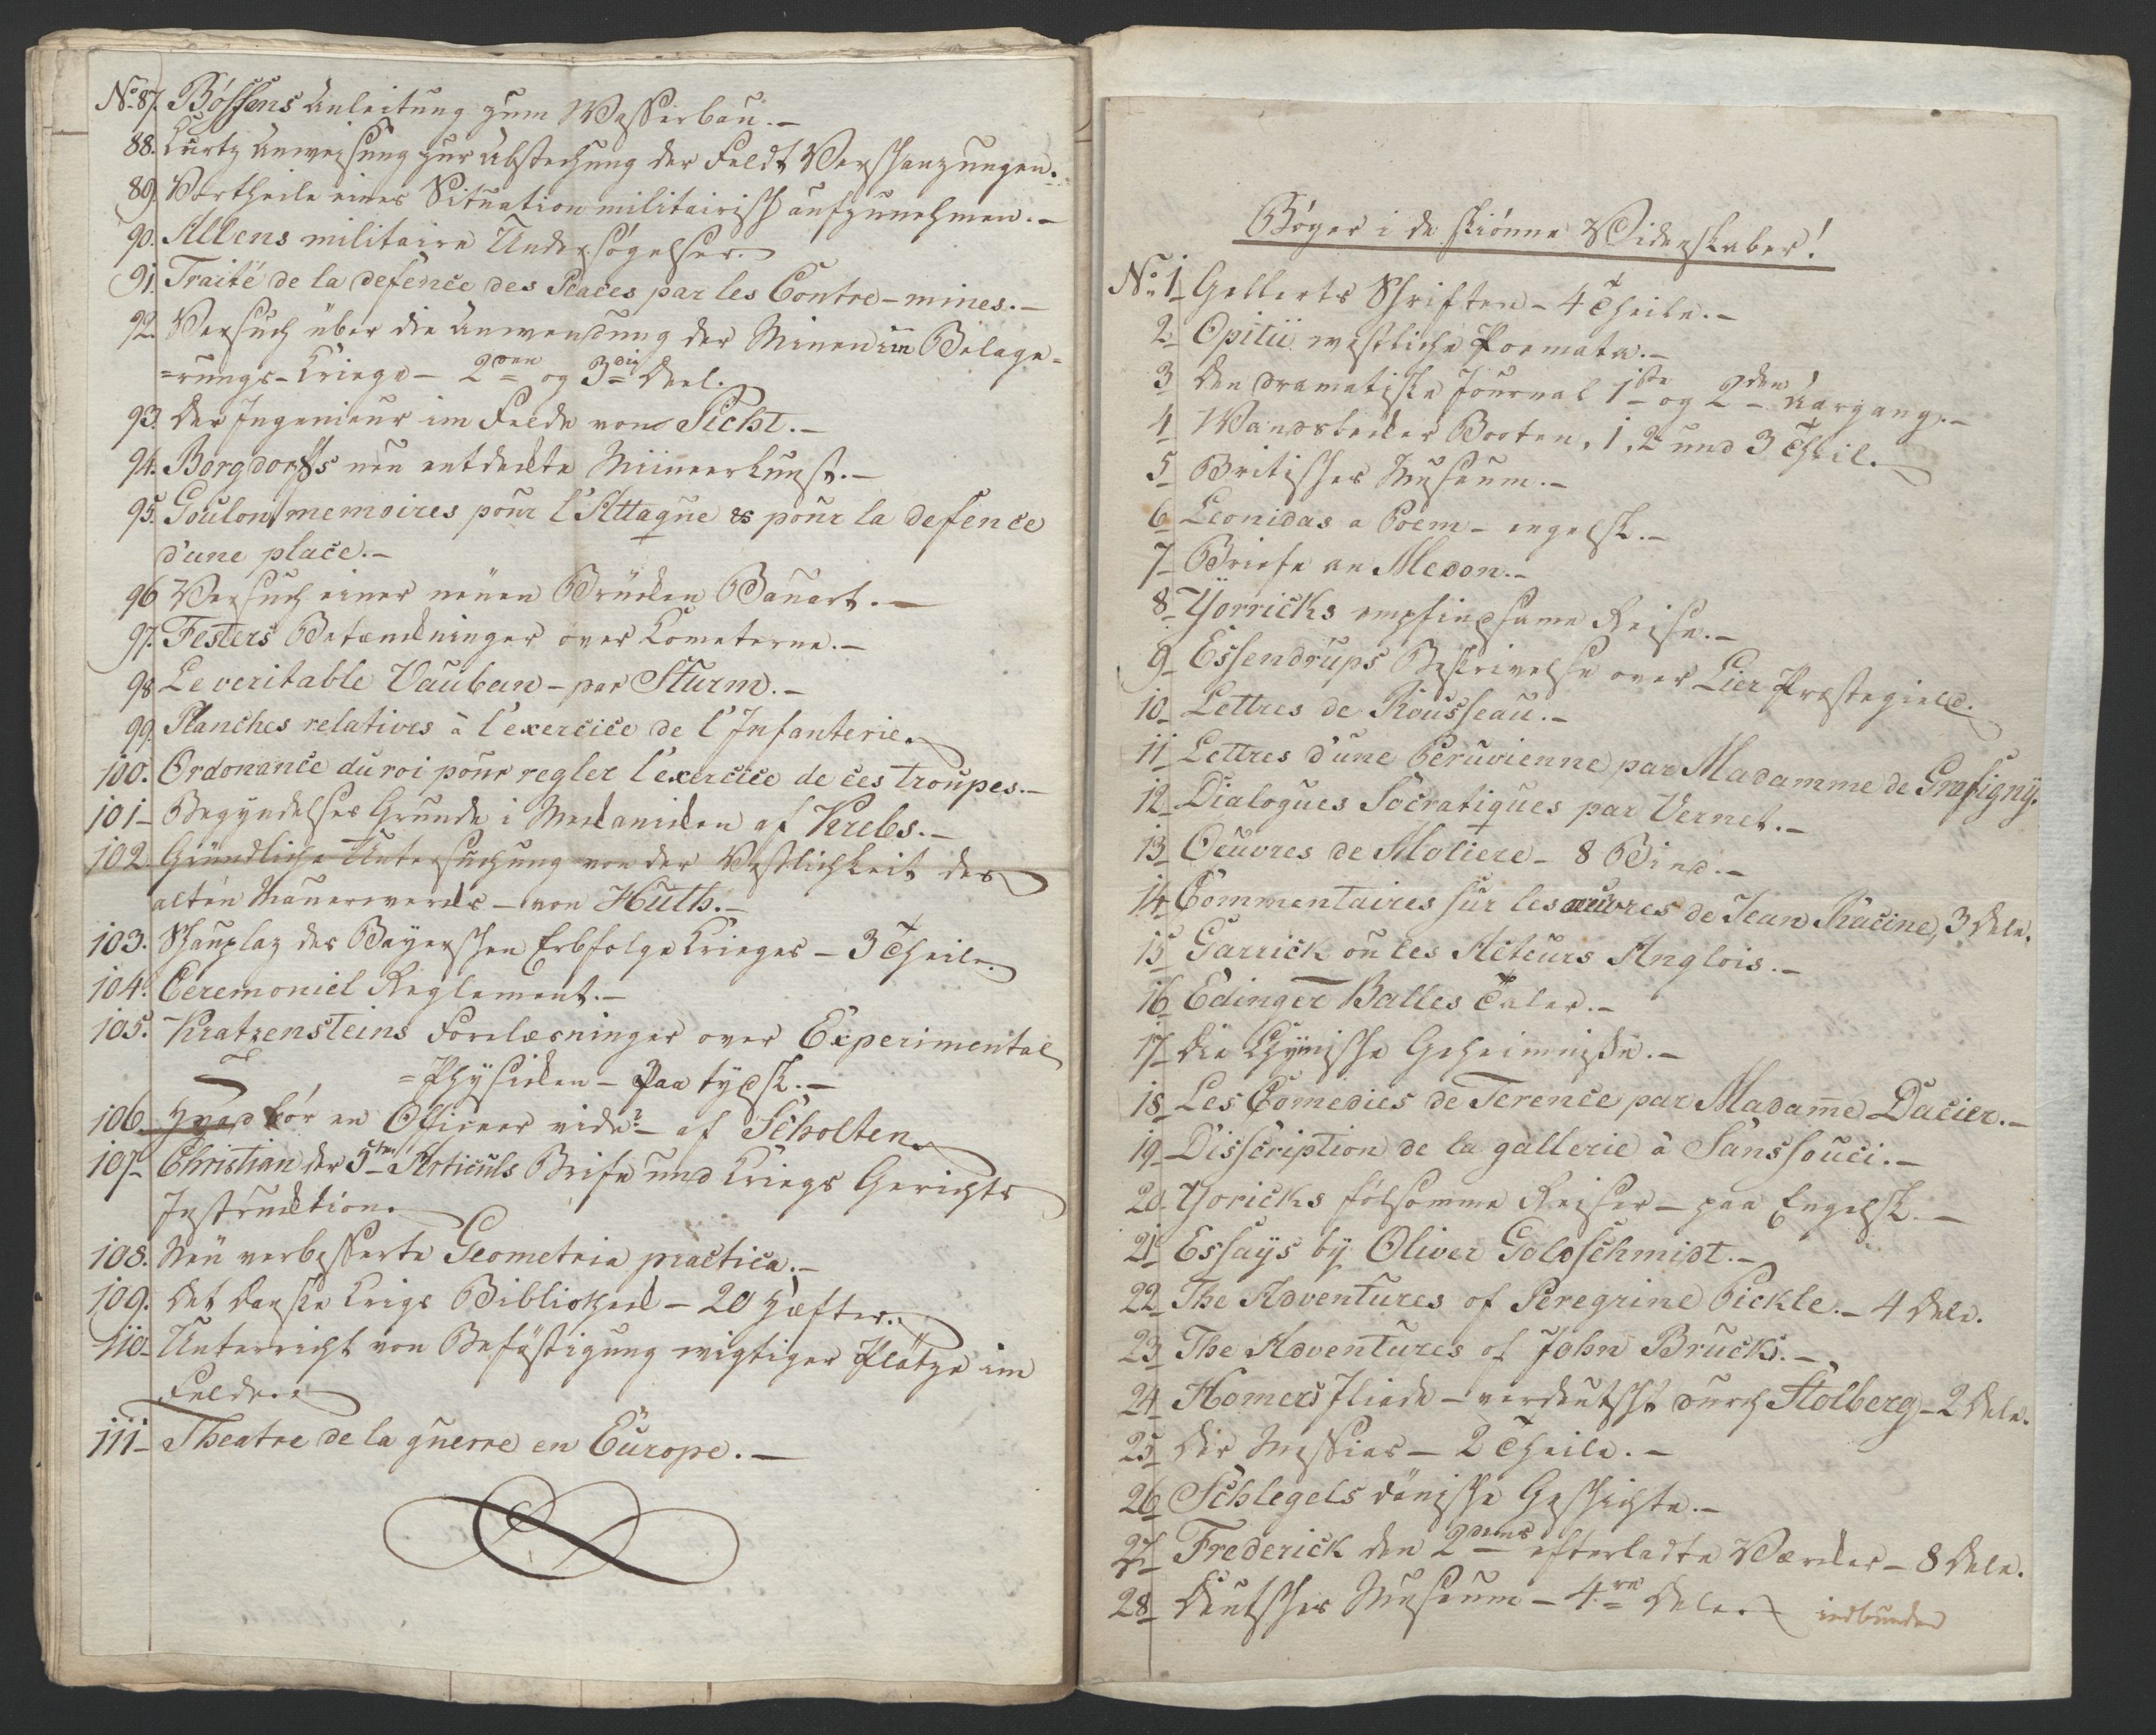 No. 87. Bössens Anleitung zum Wasserbau.-
88. Kurtz Anweisung zur Abstechung der Feldt Verschanzungen.
89. Vortheile eines Situation militairisch aufzunehmen.-
90. Allens militaire Undersøgelser.
91. Traité de la defence des Places par les Contre-mines.-
92. Versuch über die Anwendung der Minen im Belage=
=rungs-Kriege - 2den og 3die Deel.
93. Der Ingenieur im Felde von Picht.-
94. Borgdorfs neu entdeckte Miineerkunst.-
95. Goulon, memoires pour l'Attaque & pour la defence
d'une place.-
96 Versuch einer neuen Brücken Bauart.-
97. Festers Betænckninger over Kometerne.-
98 Le veritable Vauban - par Sturm.-
99. Planches relatives à l'exercice de l'Infanterie.
100. Ordonance du roi pour regler l'exercice de ces troupes.-
101- Begyndelses Grunde i Mechaniken af Krebs.-
102 Gründliche Untersuchung von der Vestlichkeit des
alten Mauerwercks - von Huth.-
103. Schauplaz des Bayerschen Erbfolge Krieges - 3 Theile.
104. Ceremoniel Reglement.-
105. Kratzensteins Forelæsninger over Experimental
=Physicken - paa tydsk.-
106. Hvad bør en Officeer vide? - af Scholten.
107- Christian der 5ten Articuls Brife und Kriegs Gerichts
Instrucktion.
108. Neu verbesserte Geometria practica.-
109. Det Danske Krigs Bibliotheck - 20 Hæfter.
110- Unterricht von Befästigung wigtiger Plätze im
Felde.
111- Theatre de la guerre en Europe.-
Bøger i de skiønne Videnskaber!
No. 1 Gellerts Schriften - 4 Theile.-
2 Opitii weltliche Poemata.-
3 Den dramatiske Journal 1ste og 2den Aargang.-
4 Wandsbecker Booten, 1, 2 und 3 Theil.
5 Britisches Museum.-
6 Leonidas a Poem - engelsk.-
7- Briefe an Medon.-
8- Yorricks empfindsame Reise.-
9- Essendrups Beskrivelse over Lier Præstegield.
10 Lettres de Rousseau.-
11 Lettres d'une Peruvienne par Madamme de Grafigny.
12 Dialogues Socratiques par Vernet.-
13 Oeuvres de Moliere - 8 Bind.-
14 Commentaires sur les œuvres de Jean Racine, 3 Dele.
15 Garrick ou les Acteurs Anglois.-
16 Edinger Balles Taler.-
17 Die Chymische Geheimniße.-
18 Les Comedies de Terence par Madame Dacier.-
19- Disscription de la gallerie à Sanssouci.-
20- Yoricks følsomme Reiser - paa Engelsk.-
21 Essays by Oliver Goldschmidt.-
22 The Adventures of Peregrine Pickle.- 4 Dele.
23 The Adventures of John Bruck's.-
24 Homers Iliade - verdeutscht durch Stolberg - 2 Dele.
25 Der Messias - 2 Theile.-
26 Schlegels dänische Geschichte.-
27 Frederick den 2dens efterladte Værcker - 8 Dele.
28 Deutsches Museum - 4re Deler indbunden